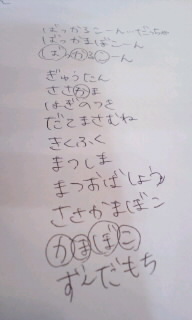 ばっかるこーん だっちゅ
ばっかまぼこーん
ばっかるこーん
ぎゅうたん
ささかま
はぎのつき
だてまさむね
きくふく
まつしま
まつおばしょう
ささかまぼこ
かまぼこ
ずんだもち